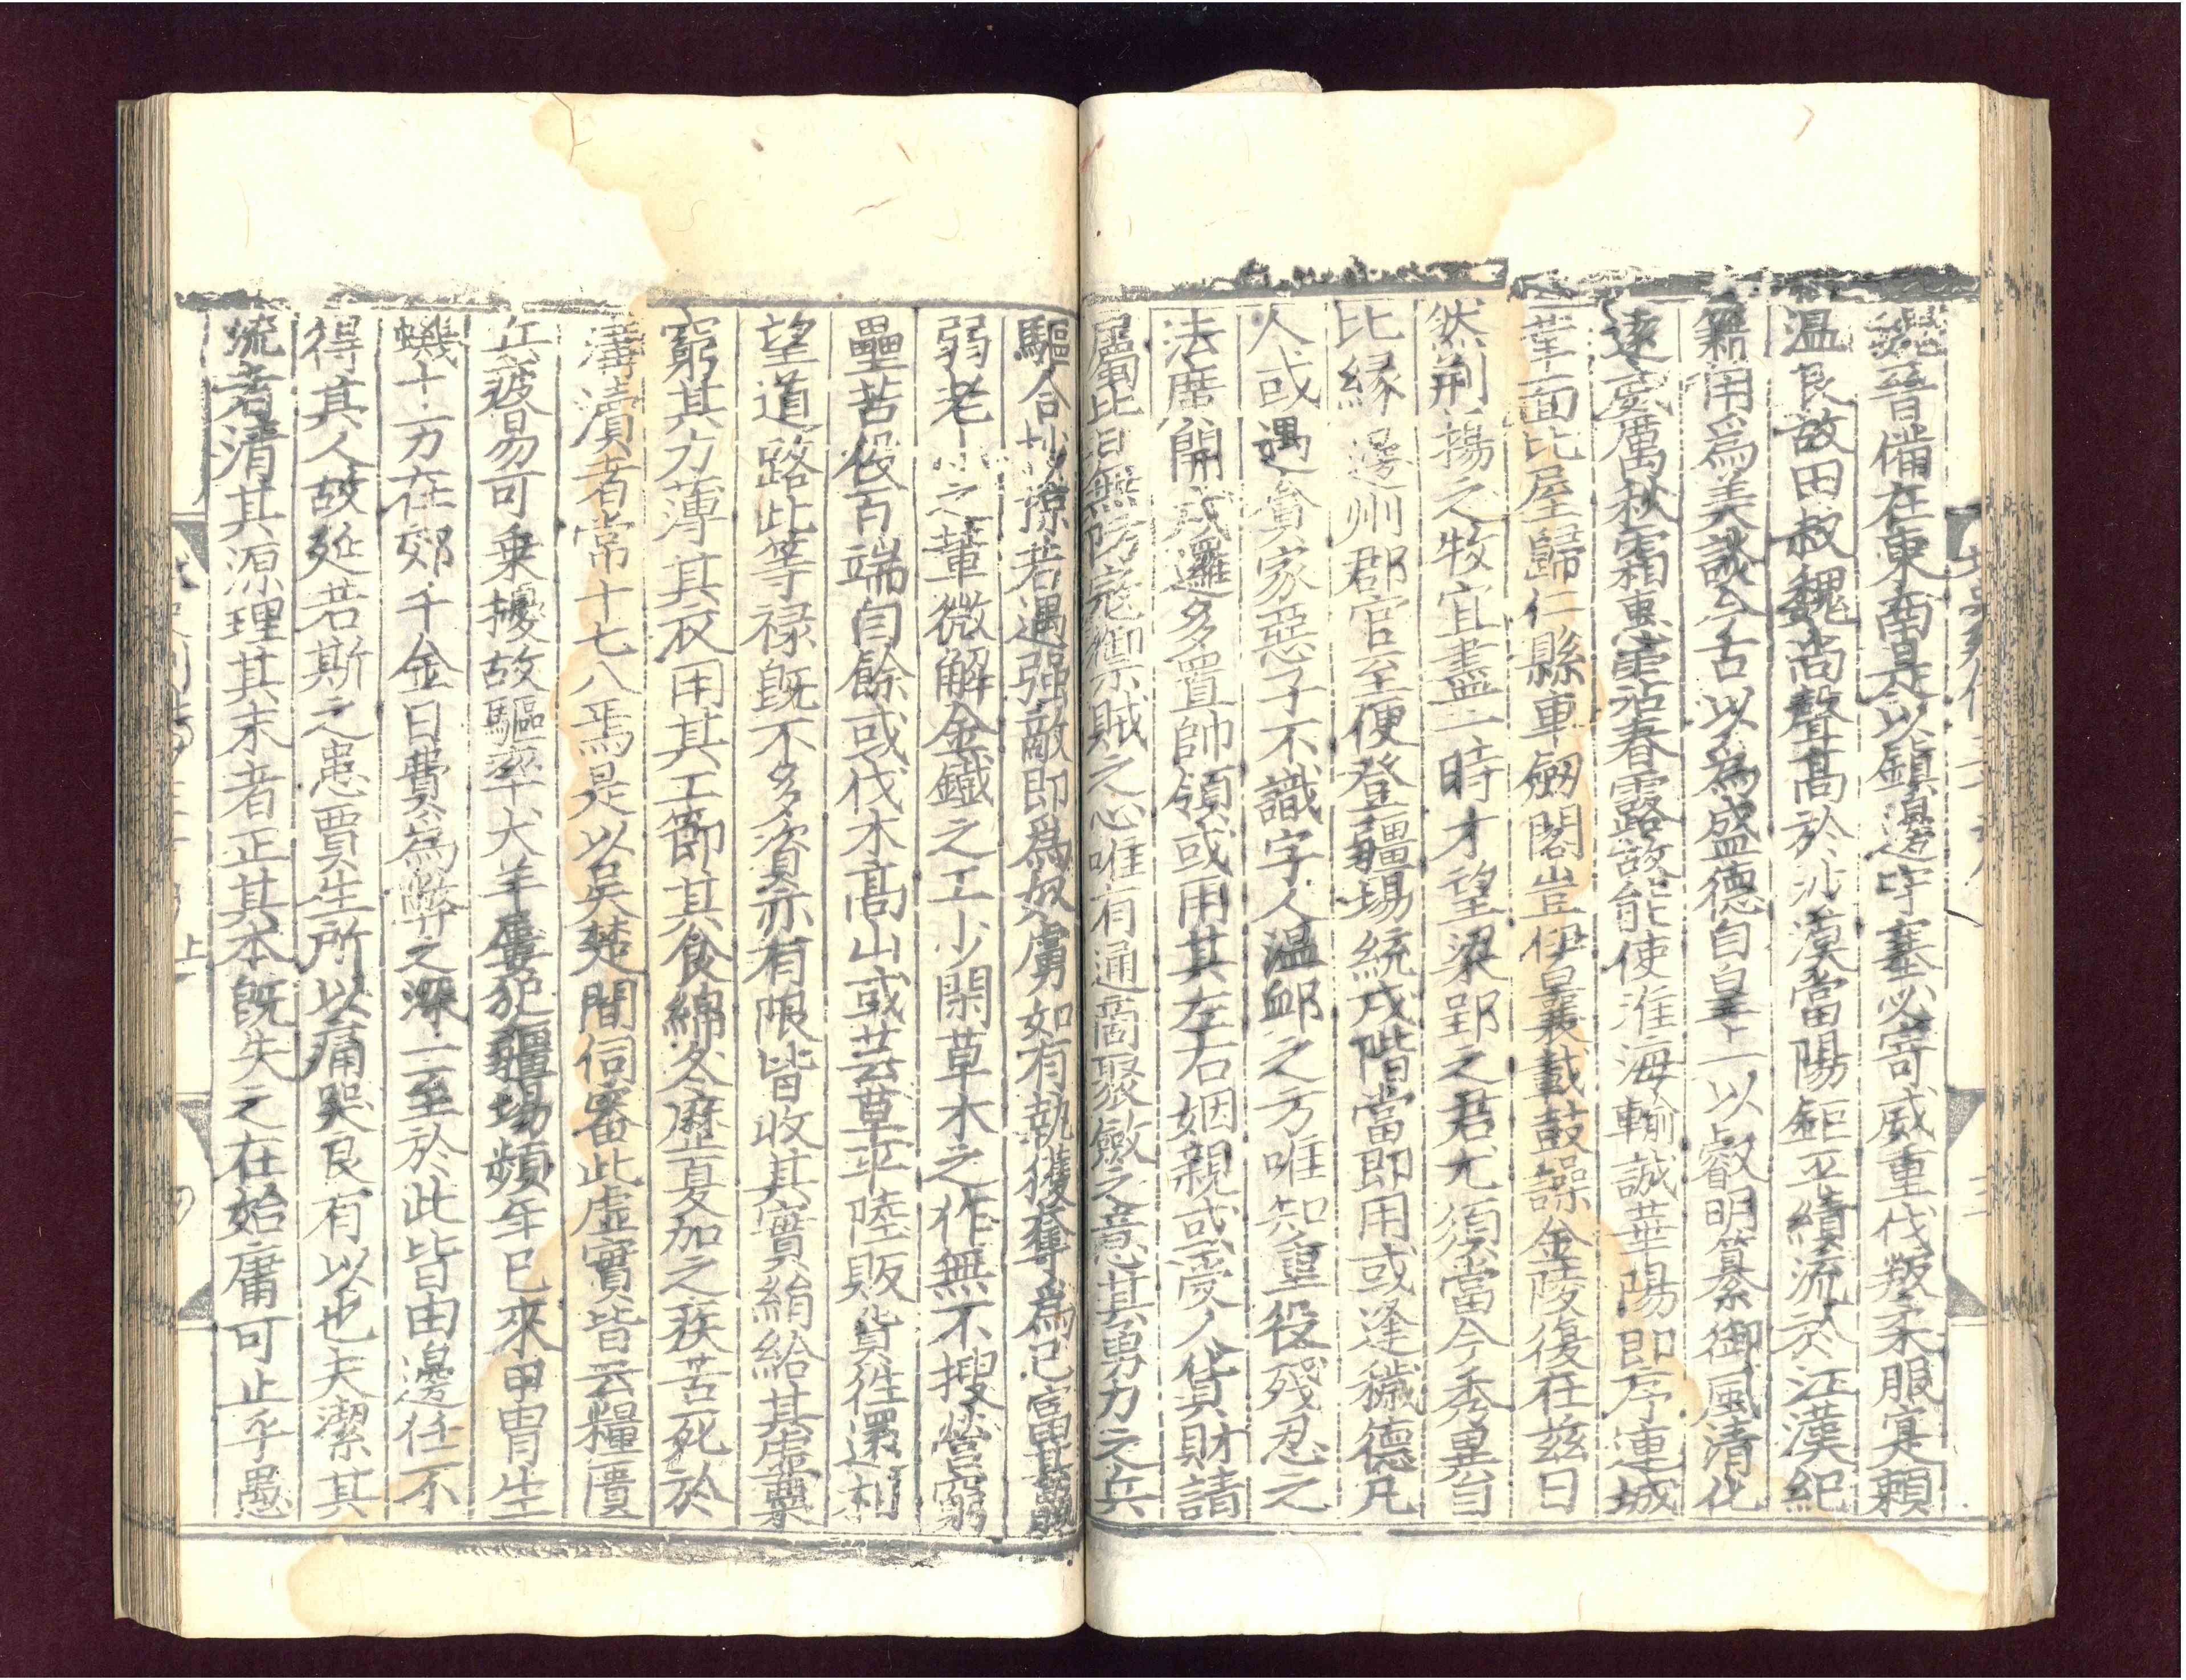 魏晉備在東南是以鎮邊守塞必寄威重伐叛柔服寔賴
温良故田叔魏尚聲高於沙漠當陽鉅平績流於江漢紀
籍用爲美談今古以爲盛德自皇上以叡明纂御風清化
遠威厲秋霜惠霑春露故能使淮海輸誠華陽即序連城
革面比屋歸仁縣車劒閣豈伊曩載鼓譟金陵復在兹日
然荆揚之牧宜盡一時才望梁郢之君尤須當今秀異自
比緣邊州郡官至便登疆場統戍階當即用或逢穢德凡
人或遇貪家惡子不識字人温衈之方唯知重役殘忍之
法廣開戍邏多置帥領或用其左右姻親或受人貨財請
屬皆無防寇禦賊之心唯有通啇聚斂之意其勇力之兵
驅令抄掠若遇强敵即爲奴虜如有執獲奪爲己富其羸
弱老小之輩微解金鐵之工少閑草木之作無不搜營窮
壘苦役百端自餘或伐木髙山或芸草平陸販貨往還相
望道路此等禄旣不多資亦有限皆收其實絹給其虛粟
窮其力薄其衣用其工節其食綿冬歷夏加之疾苦死於
溝瀆者常十七八焉是以吳楚間伺審此虛實皆云糧匱
兵疲易可乗擾故驅率犬羊屢犯疆場頻年已來甲胄生
蟣十万在郊千金日費爲弊之深一至於此皆由邊任不
得其人故延若斯之患賈生所以痛哭良有以也夫潔其
流者清其源理其末者正其本旣失之在始庸可止乎愚